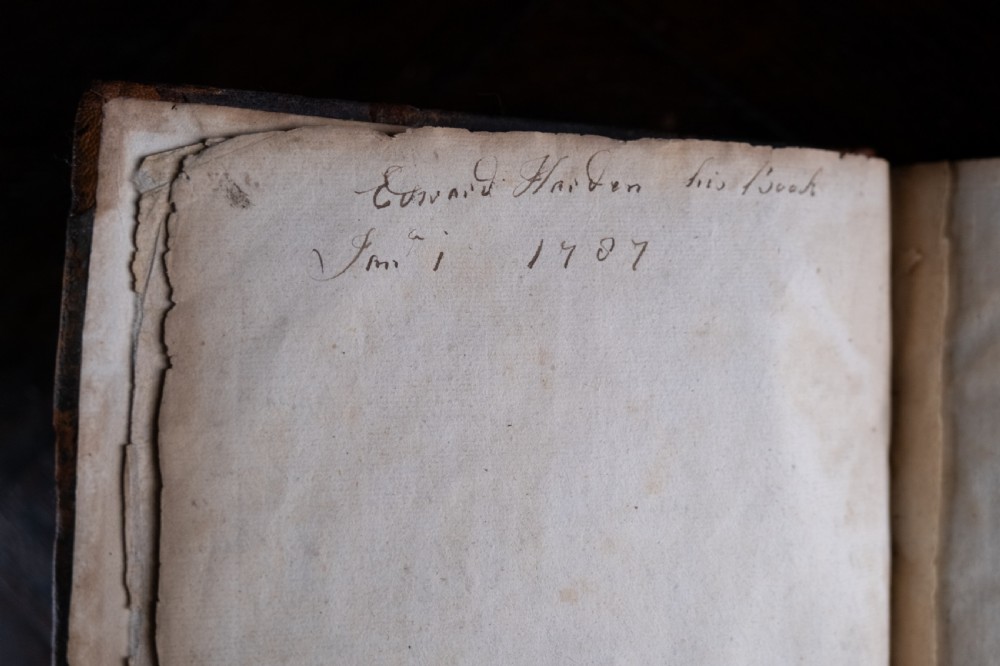 Edward Harden his Book
Janª 1 1787